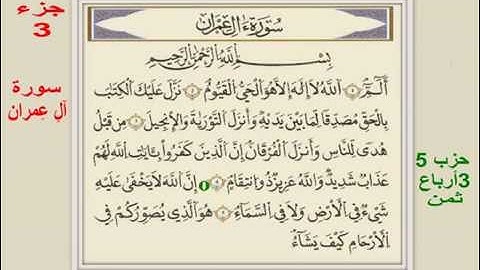 جزء
3
سورة
آل عمران
سُورَةُ آلِ عِمْرَانَ
بِسْمِ اللَّهِ الرَّحْمَٰنِ الرَّحِيمِ
الٓمٓ ۝ اللَّهُ لَا إِلَٰهَ إِلَّا هُوَ الْحَيُّ الْقَيُّومُ ۝ نَزَّلَ عَلَيْكَ الْكِتَابَ
بِالْحَقِّ مُصَدِّقًا لِمَا بَيْنَ يَدَيْهِ وَأَنزَلَ التَّوْرَىٰةَ وَالْإِنجِيلَ ۝ مِن قَبْلُ
هُدًى لِلنَّاسِ وَأَنزَلَ الْفُرْقَانَ إِنَّ الَّذِينَ كَفَرُوا بِـَٔايَـٰتِ اللَّهِ لَهُمْ
عَذَابٌ شَدِيدٌ وَاللَّهُ عَزِيزٌ ذُو انتِقَامٍ ۝ إِنَّ اللَّهَ لَا يَخْفَىٰ عَلَيْهِ
شَيْءٌ فِي الْأَرْضِ وَلَا فِي السَّمَاءِ ۝ هُوَ الَّذِي يُصَوِّرُكُمْ فِي
الْأَرْحَامِ كَيْفَ يَشَاءُ
حزب 5
3أرباع
ثمن